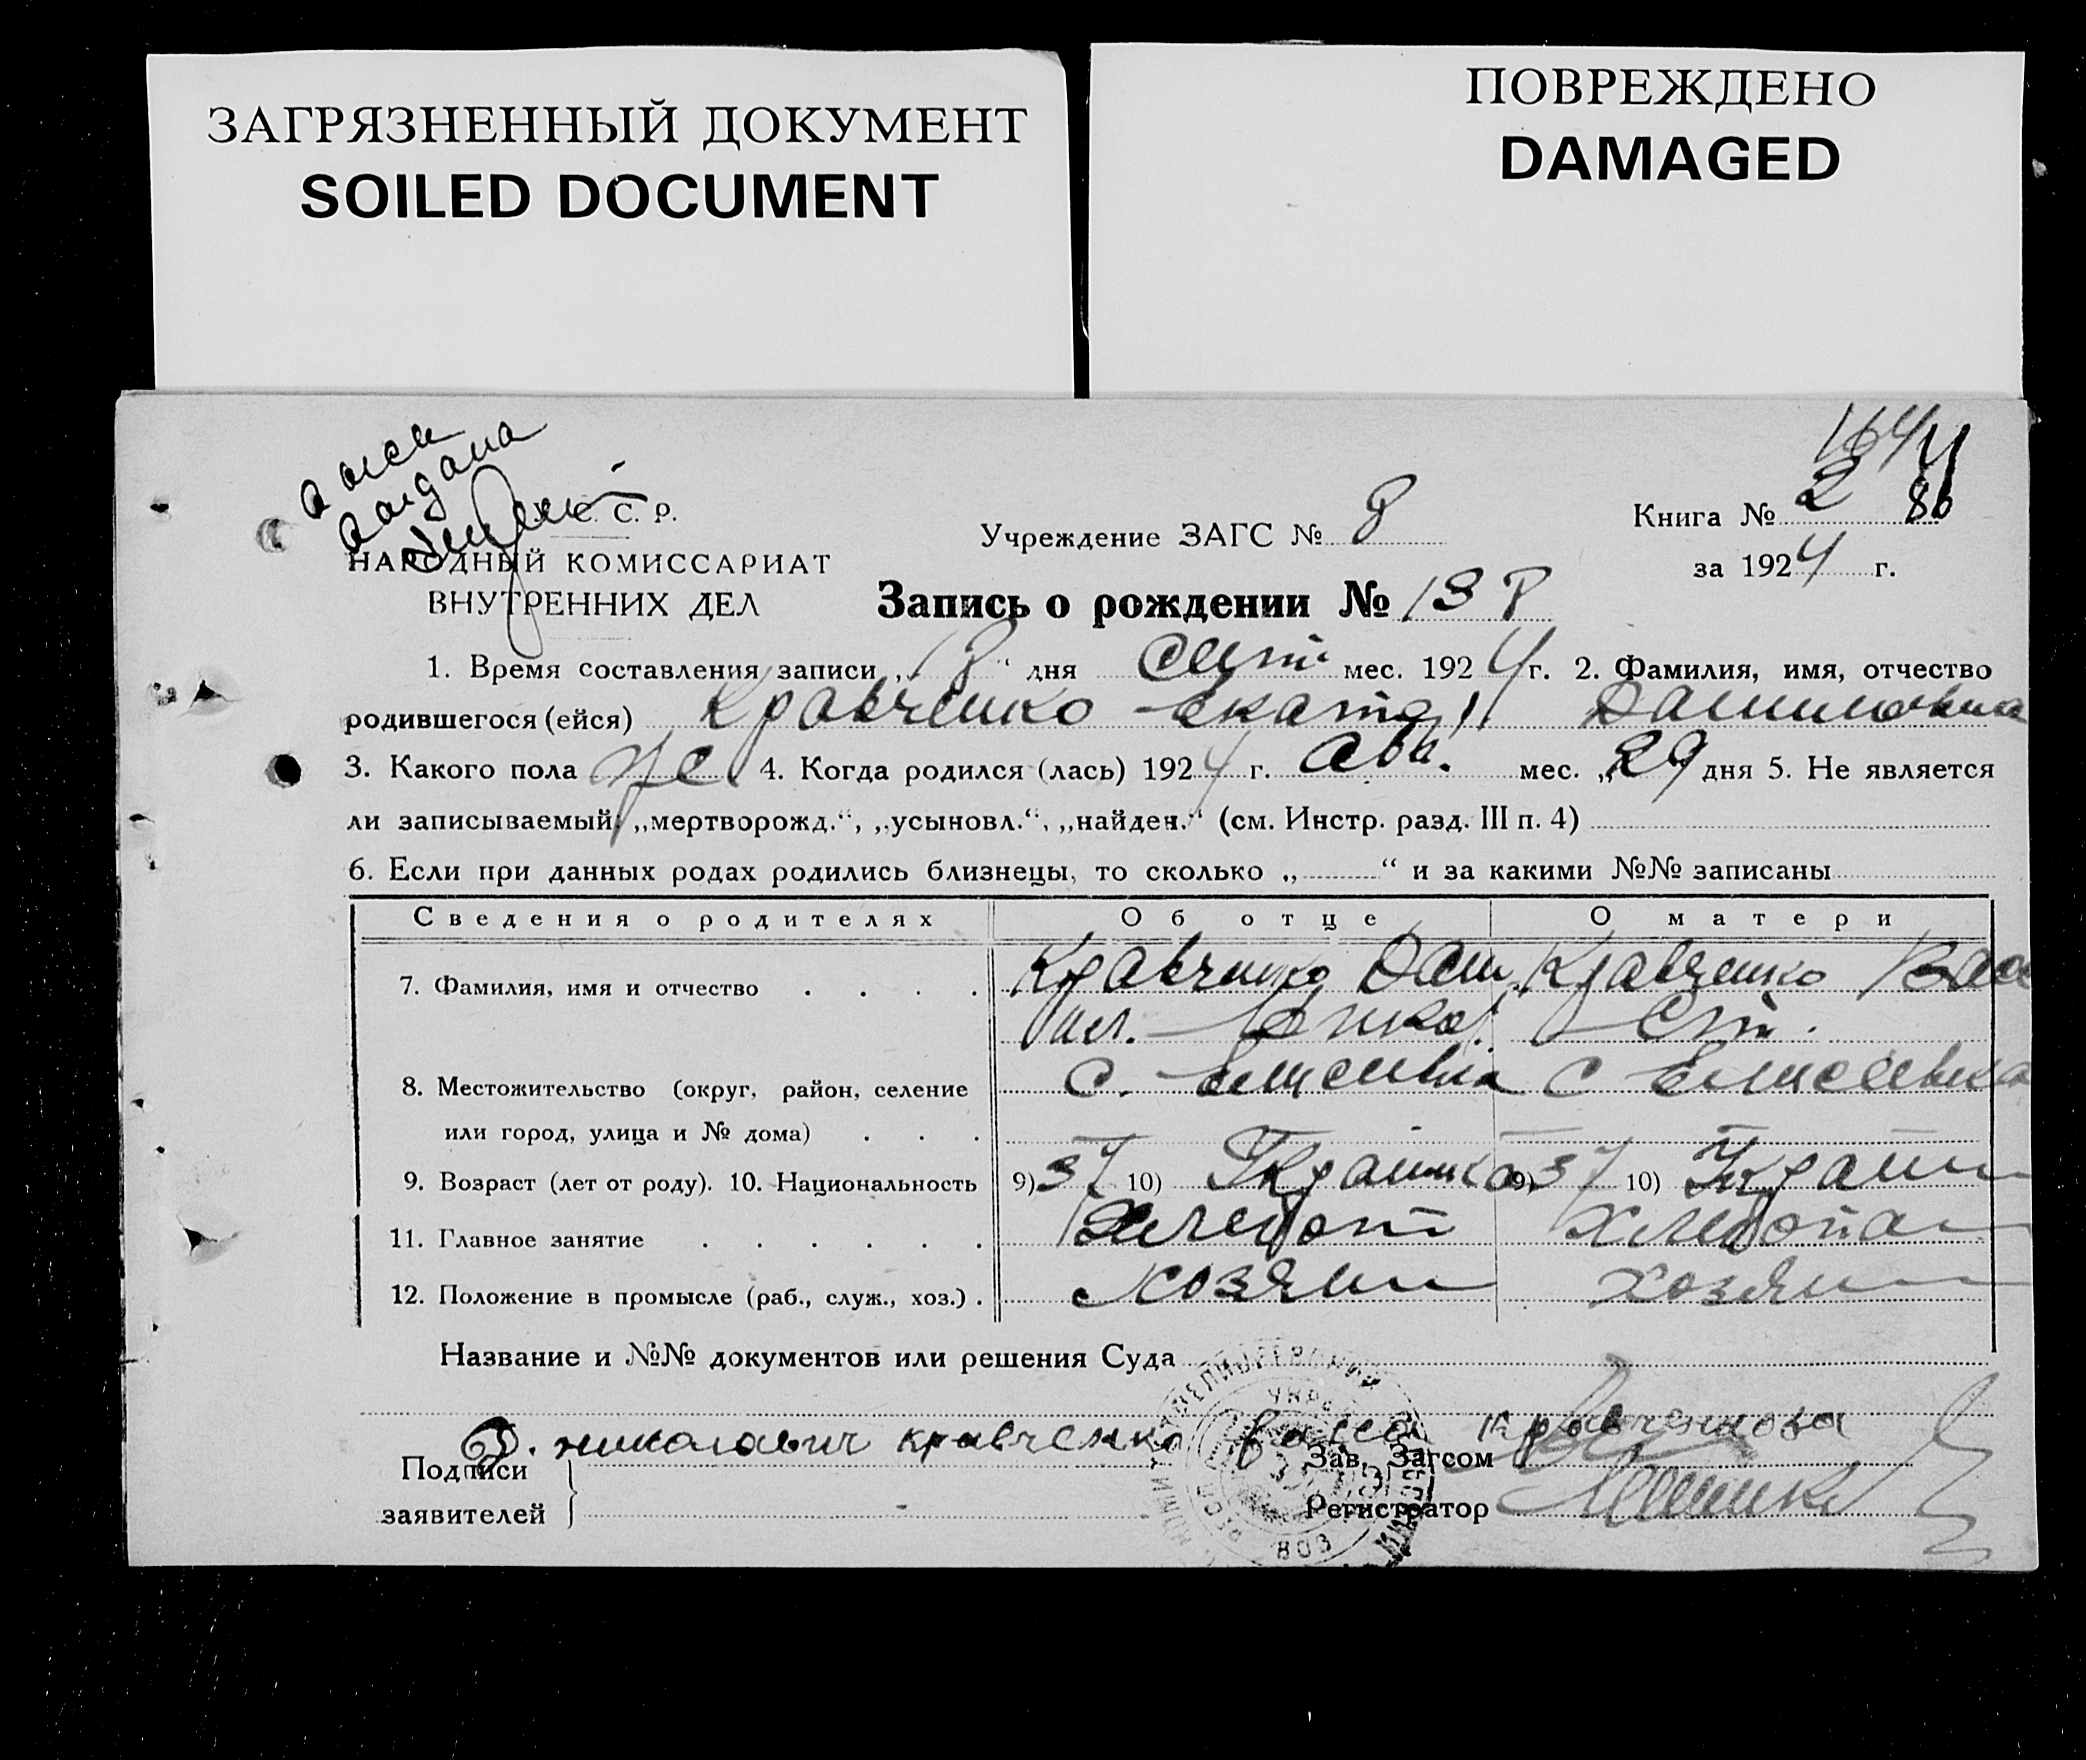 ЗАГРЯЗНЕННЫЙ ДОКУМЕНТ
SOILED DOCUMENT
ПОВРЕЖДЕНО
DAMAGED
164
С. Р.
НАРОДНЫЙ КОМИССАРИАТ
ВНУТРЕННИХ ДЕЛ
Учреждение ЗАГС № 8
Книга № 2 80
за 1924 г.
Запись о рождении № 138
1. Время составления записи „18“ дня сент. мес. 1924 г. 2. Фамилия, имя, отчество
родившегося (ейся) Кравченко Екатер Даниловна
3. Какого пола же 4. Когда родился (лась) 1924 г. авг. мес. „29 дня 5. Не является
ли записываемый: „мертворожд.“, „усыновл.“, „найден.“ (см. Инстр. разд. III п. 4)
6. Если при данных родах родились близнецы, то сколько „ “ и за какими №№ записаны
Сведения о родителях Об отце О матери
7. Фамилия, имя и отчество Кравченко Дан. Кравченко Вас
ил. Никол. Ст.
8. Местожительство (округ, район, селение с. Елисеевка с Елисеевка
или город, улица и № дома)
9. Возраст (лет от роду). 10. Национальность 9) 37 10) Украинца 9) 37 10) Украин
11. Главное занятие Хлебопа Хлебопа
12. Положение в промысле (раб., служ., хоз.) хозяин хозяин
Название и №№ документов или решения Суда
Д. николаевич кравченко васса кравченкова
Подписи
заявителей
Зав. Загсом
Регистратор
803